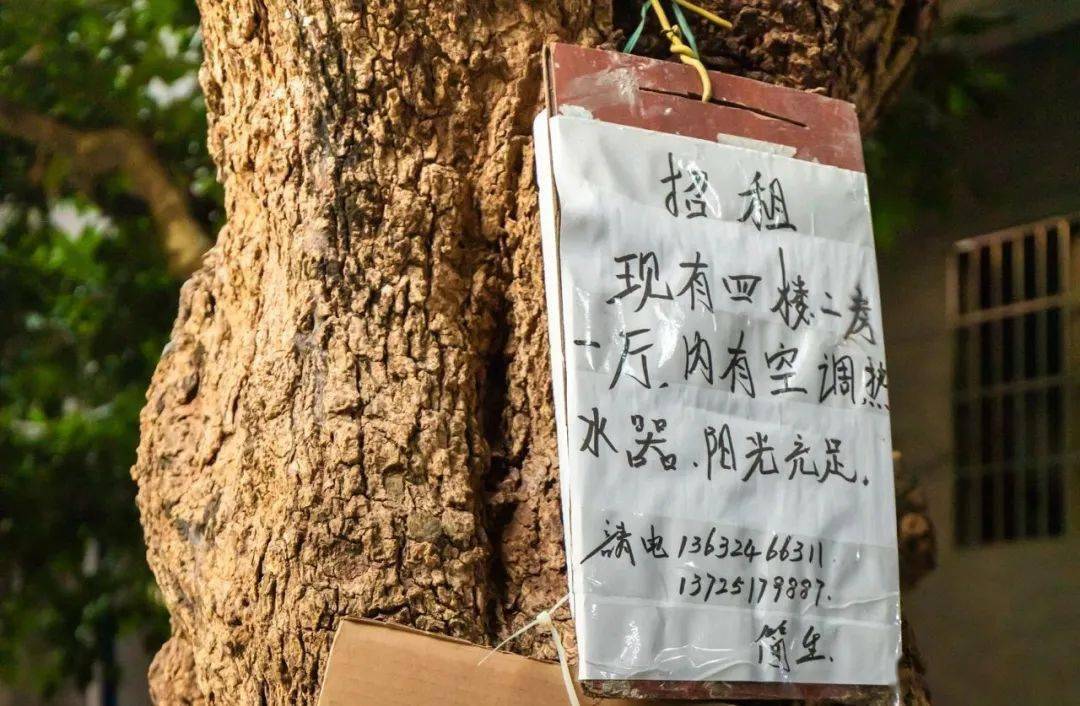 招租
现有四楼二房
一厅.内有空调热
水器.阳光充足.
請电13632466311
13725179887.
简生.